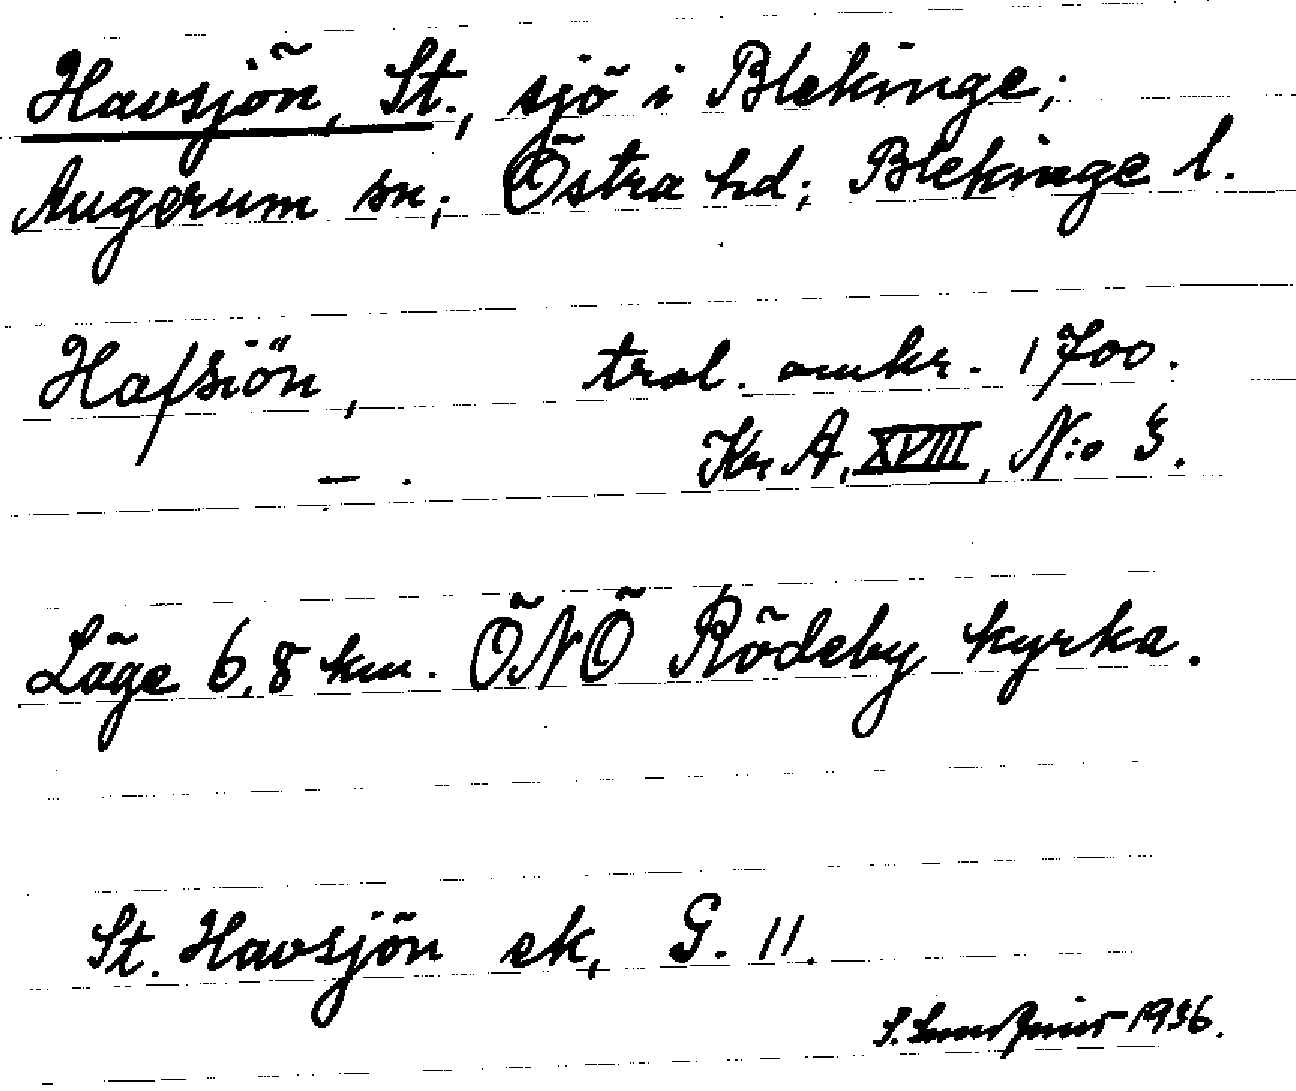 Havsjön, St., sjö i Blekinge;
Augerum sn; Östra hd; Blekinge l.
Hafsiön, trol. omkr. 1700.
— . Kr A, XVIII, N:o 3.
Läge 6,8 km. ÖNÖ Rödeby kyrka.
St. Havsjön ek, G. 11.
S. 1936.